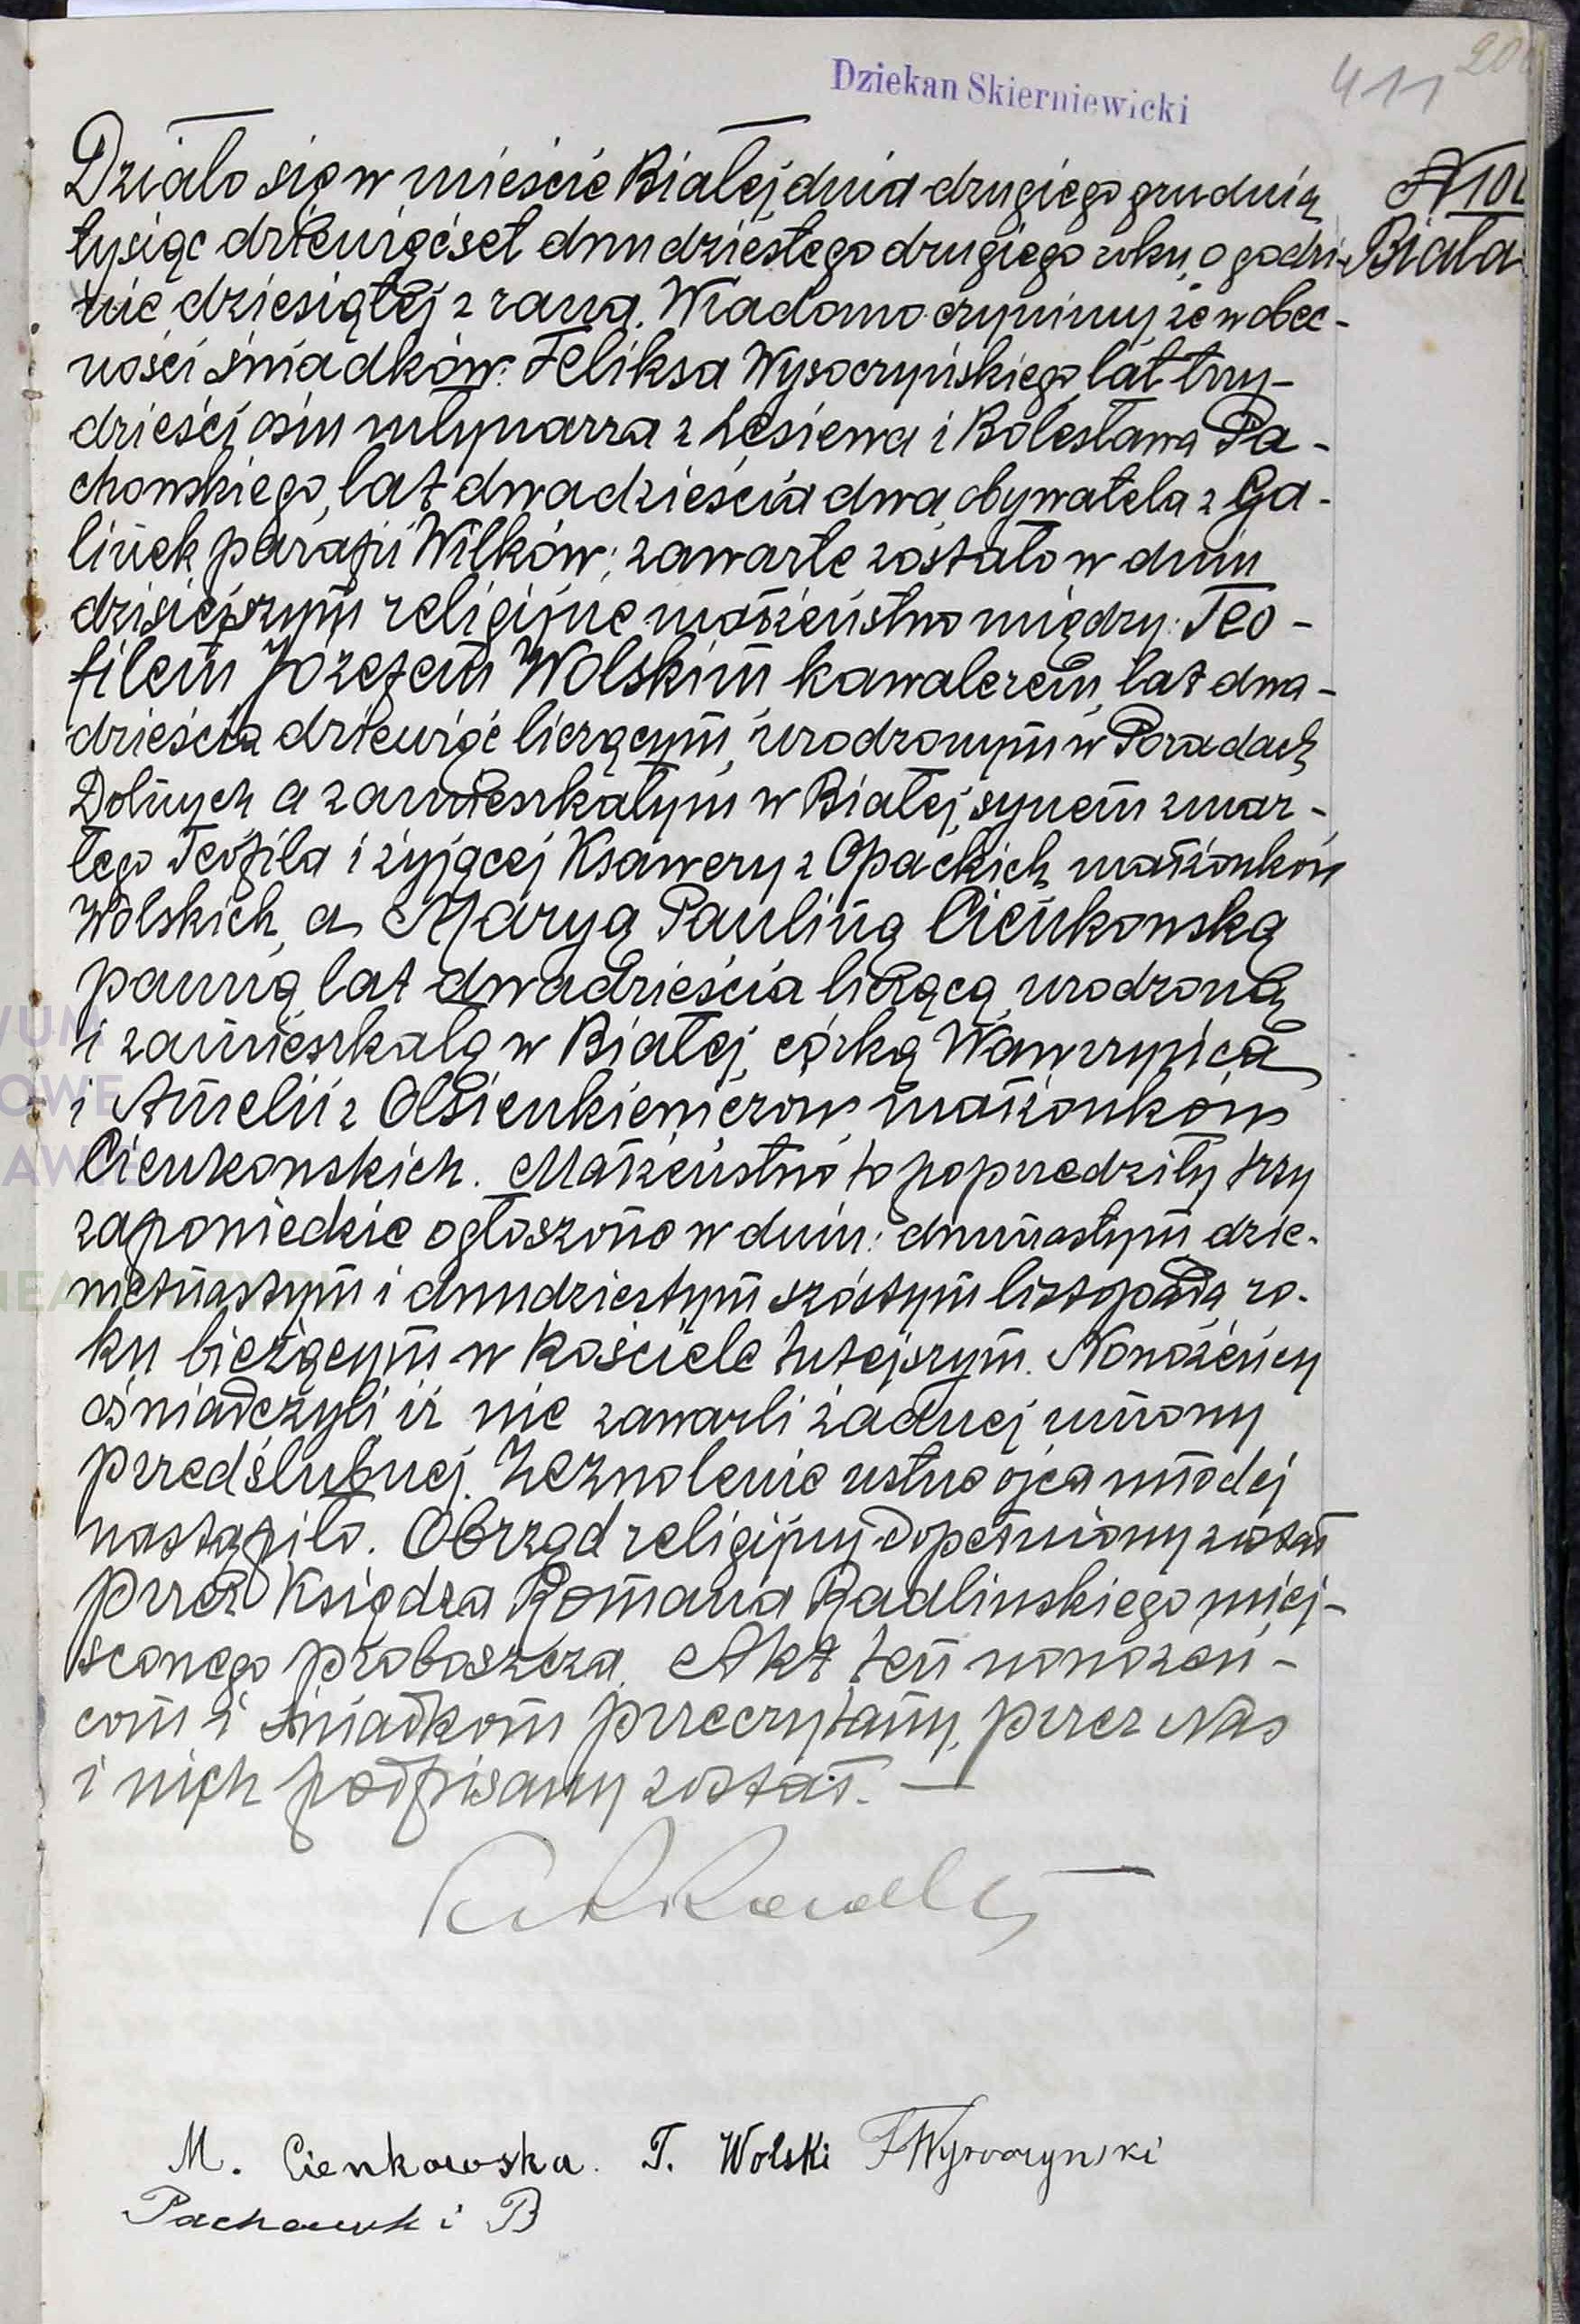 Dziekan Skierniewicki
411
Działo się w mieście Białej dnia drugiego grudnia
Biała
tysiąc dziewięćset dwudziestego drugiego roku, o godzi-
nie dziesiątej z rana. Wiadomo czynimy, że w obec-
ności świadków: Feliksa Wysoczyńskiego, lat trzy-
dzieści ośm młynarza z Lesiewa i Bolesława Pa-
chowskiego, lat dwadzieścia dwa, obywatela z Ga-
linek parafii Wilków; zawarte zostało w dniu
dzisiejszym religijne małżeństwo między: Teo-
filem Józefem Wolskim, kawalerem, lat dwa-
dzieścia dziewięć liczącym, urodzonym w Poradach
Dolnych a zamieszkałym w Białej, synem zmar-
łego Teofila i żyjącej Ksawery z Opackich małżonków
Wolskich, a Maryą Pauliną Cienkowską
panną, lat dwadzieścia liczącą, urodzoną
i zamieszkałą w Białej, córką Wawrzyńca
i Amelii z małżonków
Cienkowskich. Małżeństwo to poprzedziły trzy
zapowiedzie ogłoszone w dniu: dwunastym dzie-
więtnastym i dwudziestym szóstym listopada ro-
ku bieżącym w kościele tutejszym. Nowożeńcy
oświadczyli iż nie zawarli żadnej umowy
przedślubnej. Zezwolenie ustne ojca młodej
nastąpiło. Obrząd religijny dopełniony został
przez Księdza Romana Radlinskiego miej-
scowego proboszcza. Akt ten nowożeń-
com i świadkom przeczytany, przez nas
i nich podpisany został. —
M. Cienkowska. T. Wolski F Wysoczynski
Pachowski B